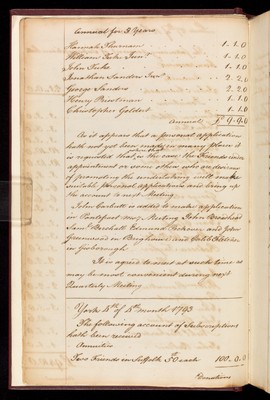 Annual for 3 Years
Hannah Thurnam 1..1..0
William Tuke Junr. 1..1..0
John Tuke 1..1..0
Jonathan Sanders Junr. 2..2..0
George Sanders 2..2..0
Henry Priestman 1..1..0
Christopher Goldert 1..1..0
Annual £9..9..0
As it appears that a personal application
hath not yet been made in many places it
is requested that in the case the Friends under
appointment or some others who are desirous
of promoting the undertaking will make
suitable personal application and bring up
the account to next Meeting
John Corbett is added to make application
in Pontefract Mo.y Meeting John
Saml. Marshall Edmund Peckover and John
Greenwood in Brighouse and Caleb Fletcher
in Gisborough
It is agreed to meet at such time as
may be most convenient during next
Quarterly Meeting
York 4th of 4th month 1793
The following account of Subscriptions
hath been received
Annuities
Two Friends in Suffolk £50 each 100..0..0
Donations